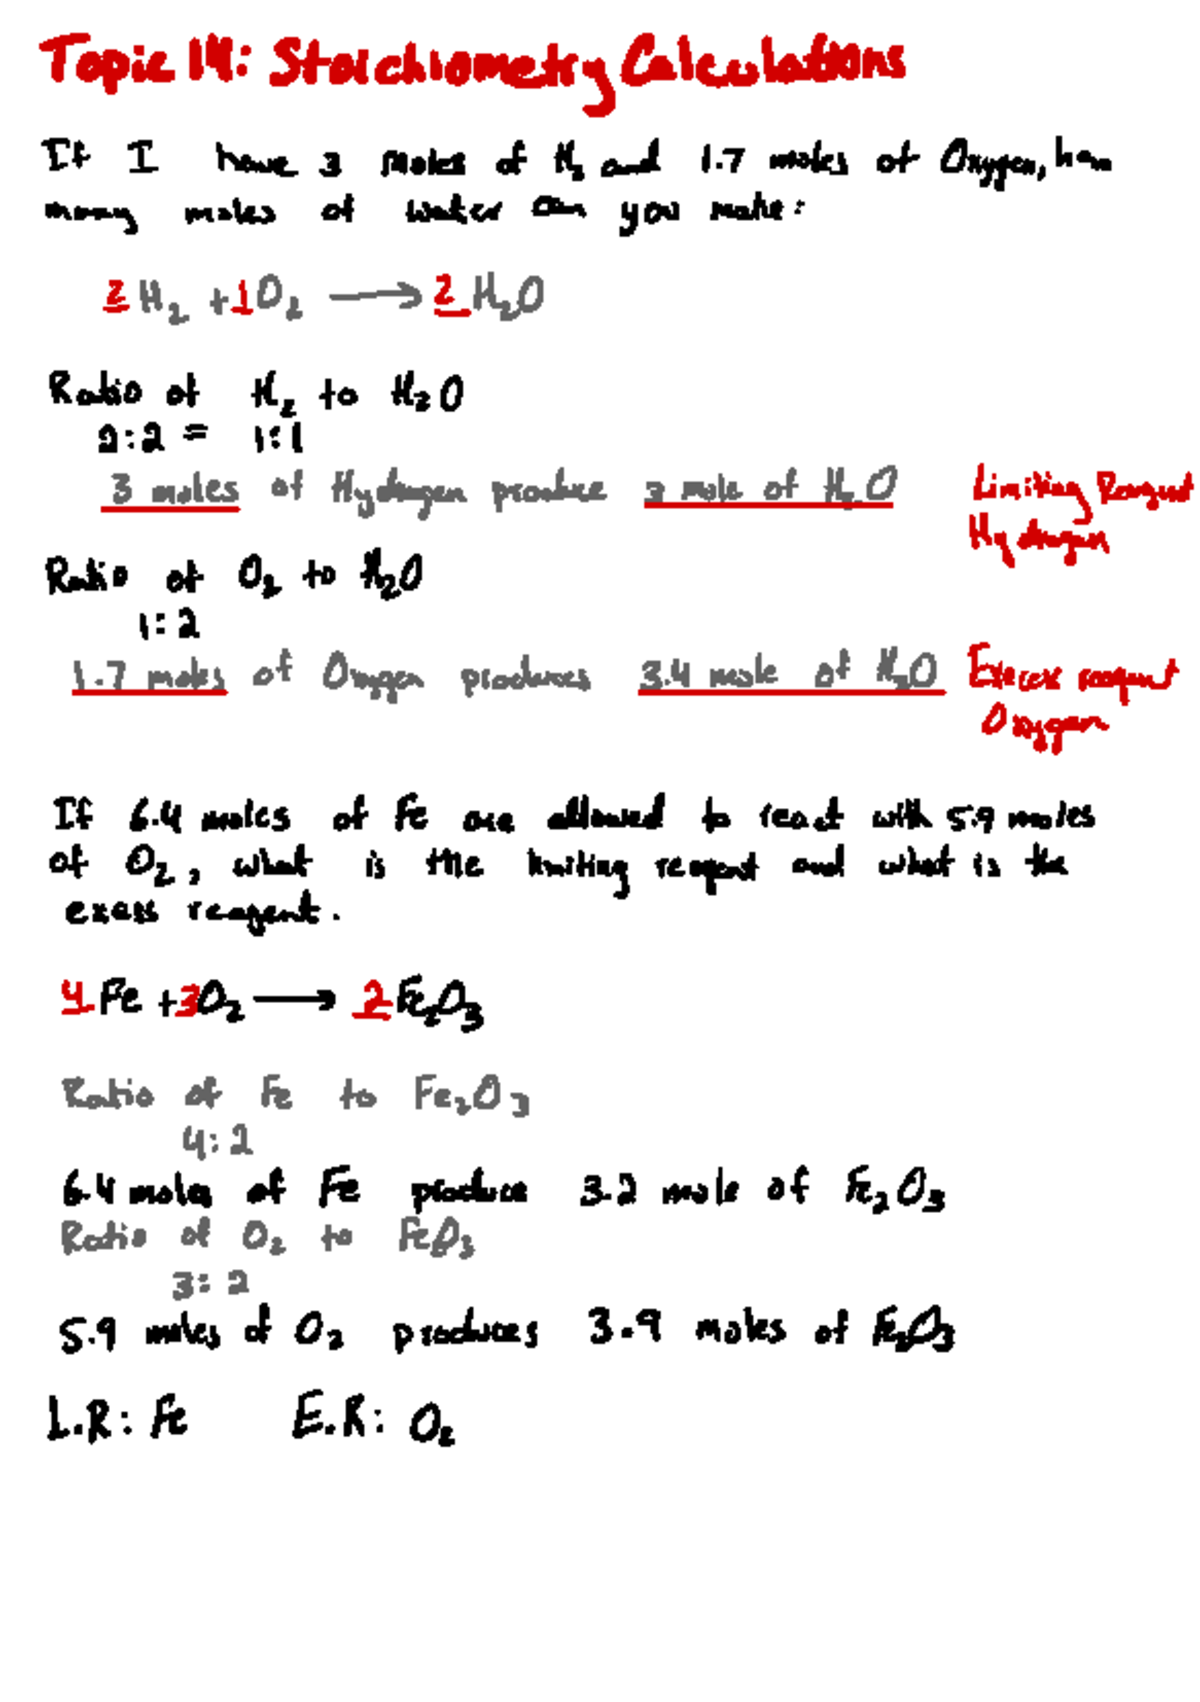 Topic 14: Stoichiometry Calculations
If I have 3 moles of H₂ and 1.7 moles of Oxygen, how
many moles of water can you make:
2 H₂ + 1O₂ → 2 H₂O
Ratio of H₂ to H₂O
2:2 = 1:1
3 moles of Hydrogen produce 3 mole of H₂O
Limiting Reagent
Hydrogen
Ratio of O₂ to H₂O
1:2
1.7 moles of Oxygen produces 3.4 mole of H₂O
Excess reagent
Oxygen
If 6.4 moles of Fe are allowed to react with 5.9 moles
of O₂, what is the limiting reagent and what is the
exess reagent.
4 Fe + 3O₂ → 2 Fe₂O₃
Ratio of Fe to Fe₂O₃
4:2
6.4 moles of Fe produce 3.2 mole of Fe₂O₃
Ratio of O₂ to Fe₂O₃
3:2
5.9 moles of O₂ produces 3.9 moles of Fe₂O₃
L.R: Fe E.R: O₂